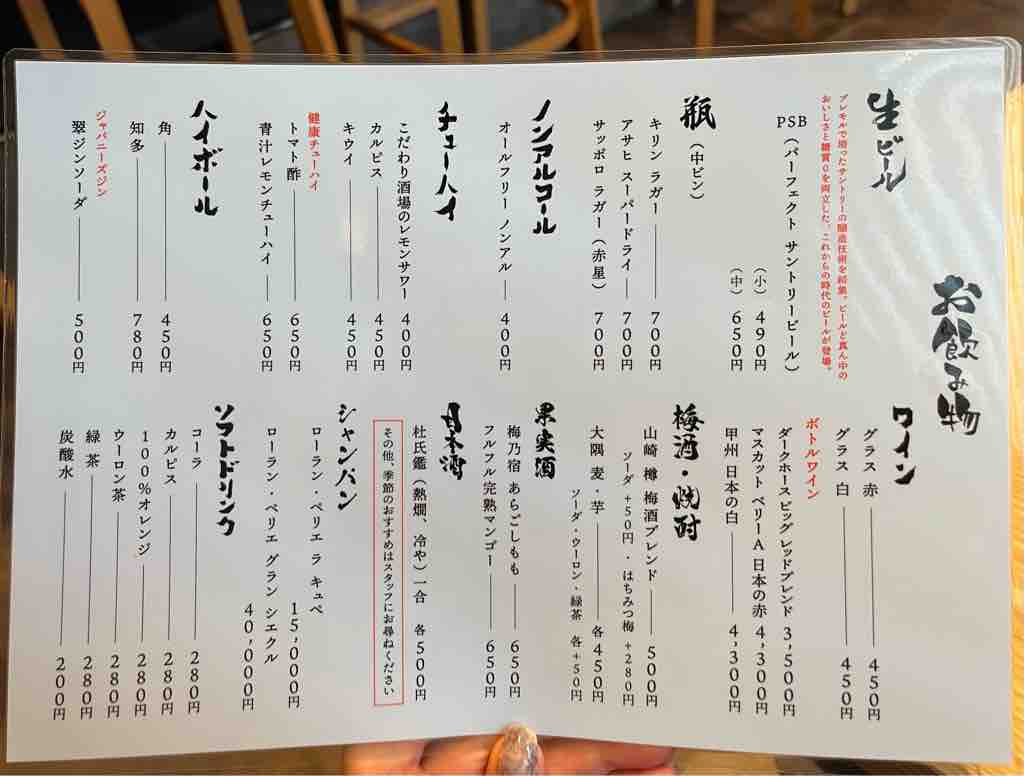 お飲み物
生ビール
プレモルで培ったサントリーの醸造技術を結集。ビールど真ん中の
おいしさと糖質0を両立した、これからの時代のビールが登場。
PSB（パーフェクト サントリービール）
（小）490円
（中）650円
瓶（中ビン）
キリン ラガー 700円
アサヒ スーパードライ 700円
サッポロ ラガー（赤星） 700円
ノンアルコール
オールフリー ノンアル 400円
チューハイ
こだわり酒場のレモンサワー 400円
カルピス 450円
キウイ 450円
健康チューハイ
トマト酢 650円
青汁レモンチューハイ 650円
ハイボール
角 450円
知多 780円
ジャパニーズジン
翠ジンソーダ 500円
ワイン
グラス 赤 450円
グラス 白 450円
ボトルワイン
ダークホース ビッグ レッドブレンド 3,500円
マスカット ベリーA 日本の赤 4,300円
甲州 日本の白 4,300円
梅酒・焼酎
山崎 樽 梅酒ブレンド 500円
ソーダ +50円・はちみつ梅 +280円
大隅 麦・芋 各450円
ソーダ・ウーロン・緑茶 各+50円
果実酒
梅乃宿 あらごしもも 650円
フルフル完熟マンゴー 650円
日本酒
杜氏鑑（熱燗、冷や）一合 各500円
その他、季節のおすすめはスタッフにお尋ねください
シャンパン
ローラン・ペリエ ラ キュベ 15,000円
ローラン・ペリエ グラン シエクル 40,000円
ソフトドリンク
コーラ 280円
カルピス 280円
100%オレンジ 280円
ウーロン茶 280円
緑茶 280円
炭酸水 200円